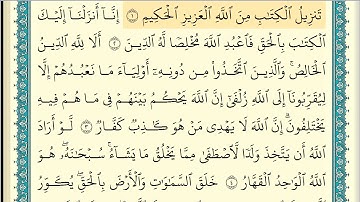 تَنزِيلُ ٱلْكِتَٰبِ مِنَ ٱللَّهِ ٱلْعَزِيزِ ٱلْحَكِيمِ ١ إِنَّآ أَنزَلْنَآ إِلَيْكَ
ٱلْكِتَٰبَ بِٱلْحَقِّ فَٱعْبُدِ ٱللَّهَ مُخْلِصًا لَّهُ ٱلدِّينَ ٢ أَلَا لِلَّهِ ٱلدِّينُ
ٱلْخَالِصُ ۚ وَٱلَّذِينَ ٱتَّخَذُوا۟ مِن دُونِهِۦٓ أَوْلِيَآءَ مَا نَعْبُدُهُمْ إِلَّا
لِيُقَرِّبُونَآ إِلَى ٱللَّهِ زُلْفَىٰٓ إِنَّ ٱللَّهَ يَحْكُمُ بَيْنَهُمْ فِى مَا هُمْ فِيهِ
يَخْتَلِفُونَ ۗ إِنَّ ٱللَّهَ لَا يَهْدِى مَنْ هُوَ كَٰذِبٌ كَفَّارٌ ٣ لَّوْ أَرَادَ
ٱللَّهُ أَن يَتَّخِذَ وَلَدًا لَّٱصْطَفَىٰ مِمَّا يَخْلُقُ مَا يَشَآءُ ۚ سُبْحَٰنَهُۥ ۖ هُوَ
ٱللَّهُ ٱلْوَٰحِدُ ٱلْقَهَّارُ ٤ خَلَقَ ٱلسَّمَٰوَٰتِ وَٱلْأَرْضَ بِٱلْحَقِّ ۖ يُكَوِّرُ